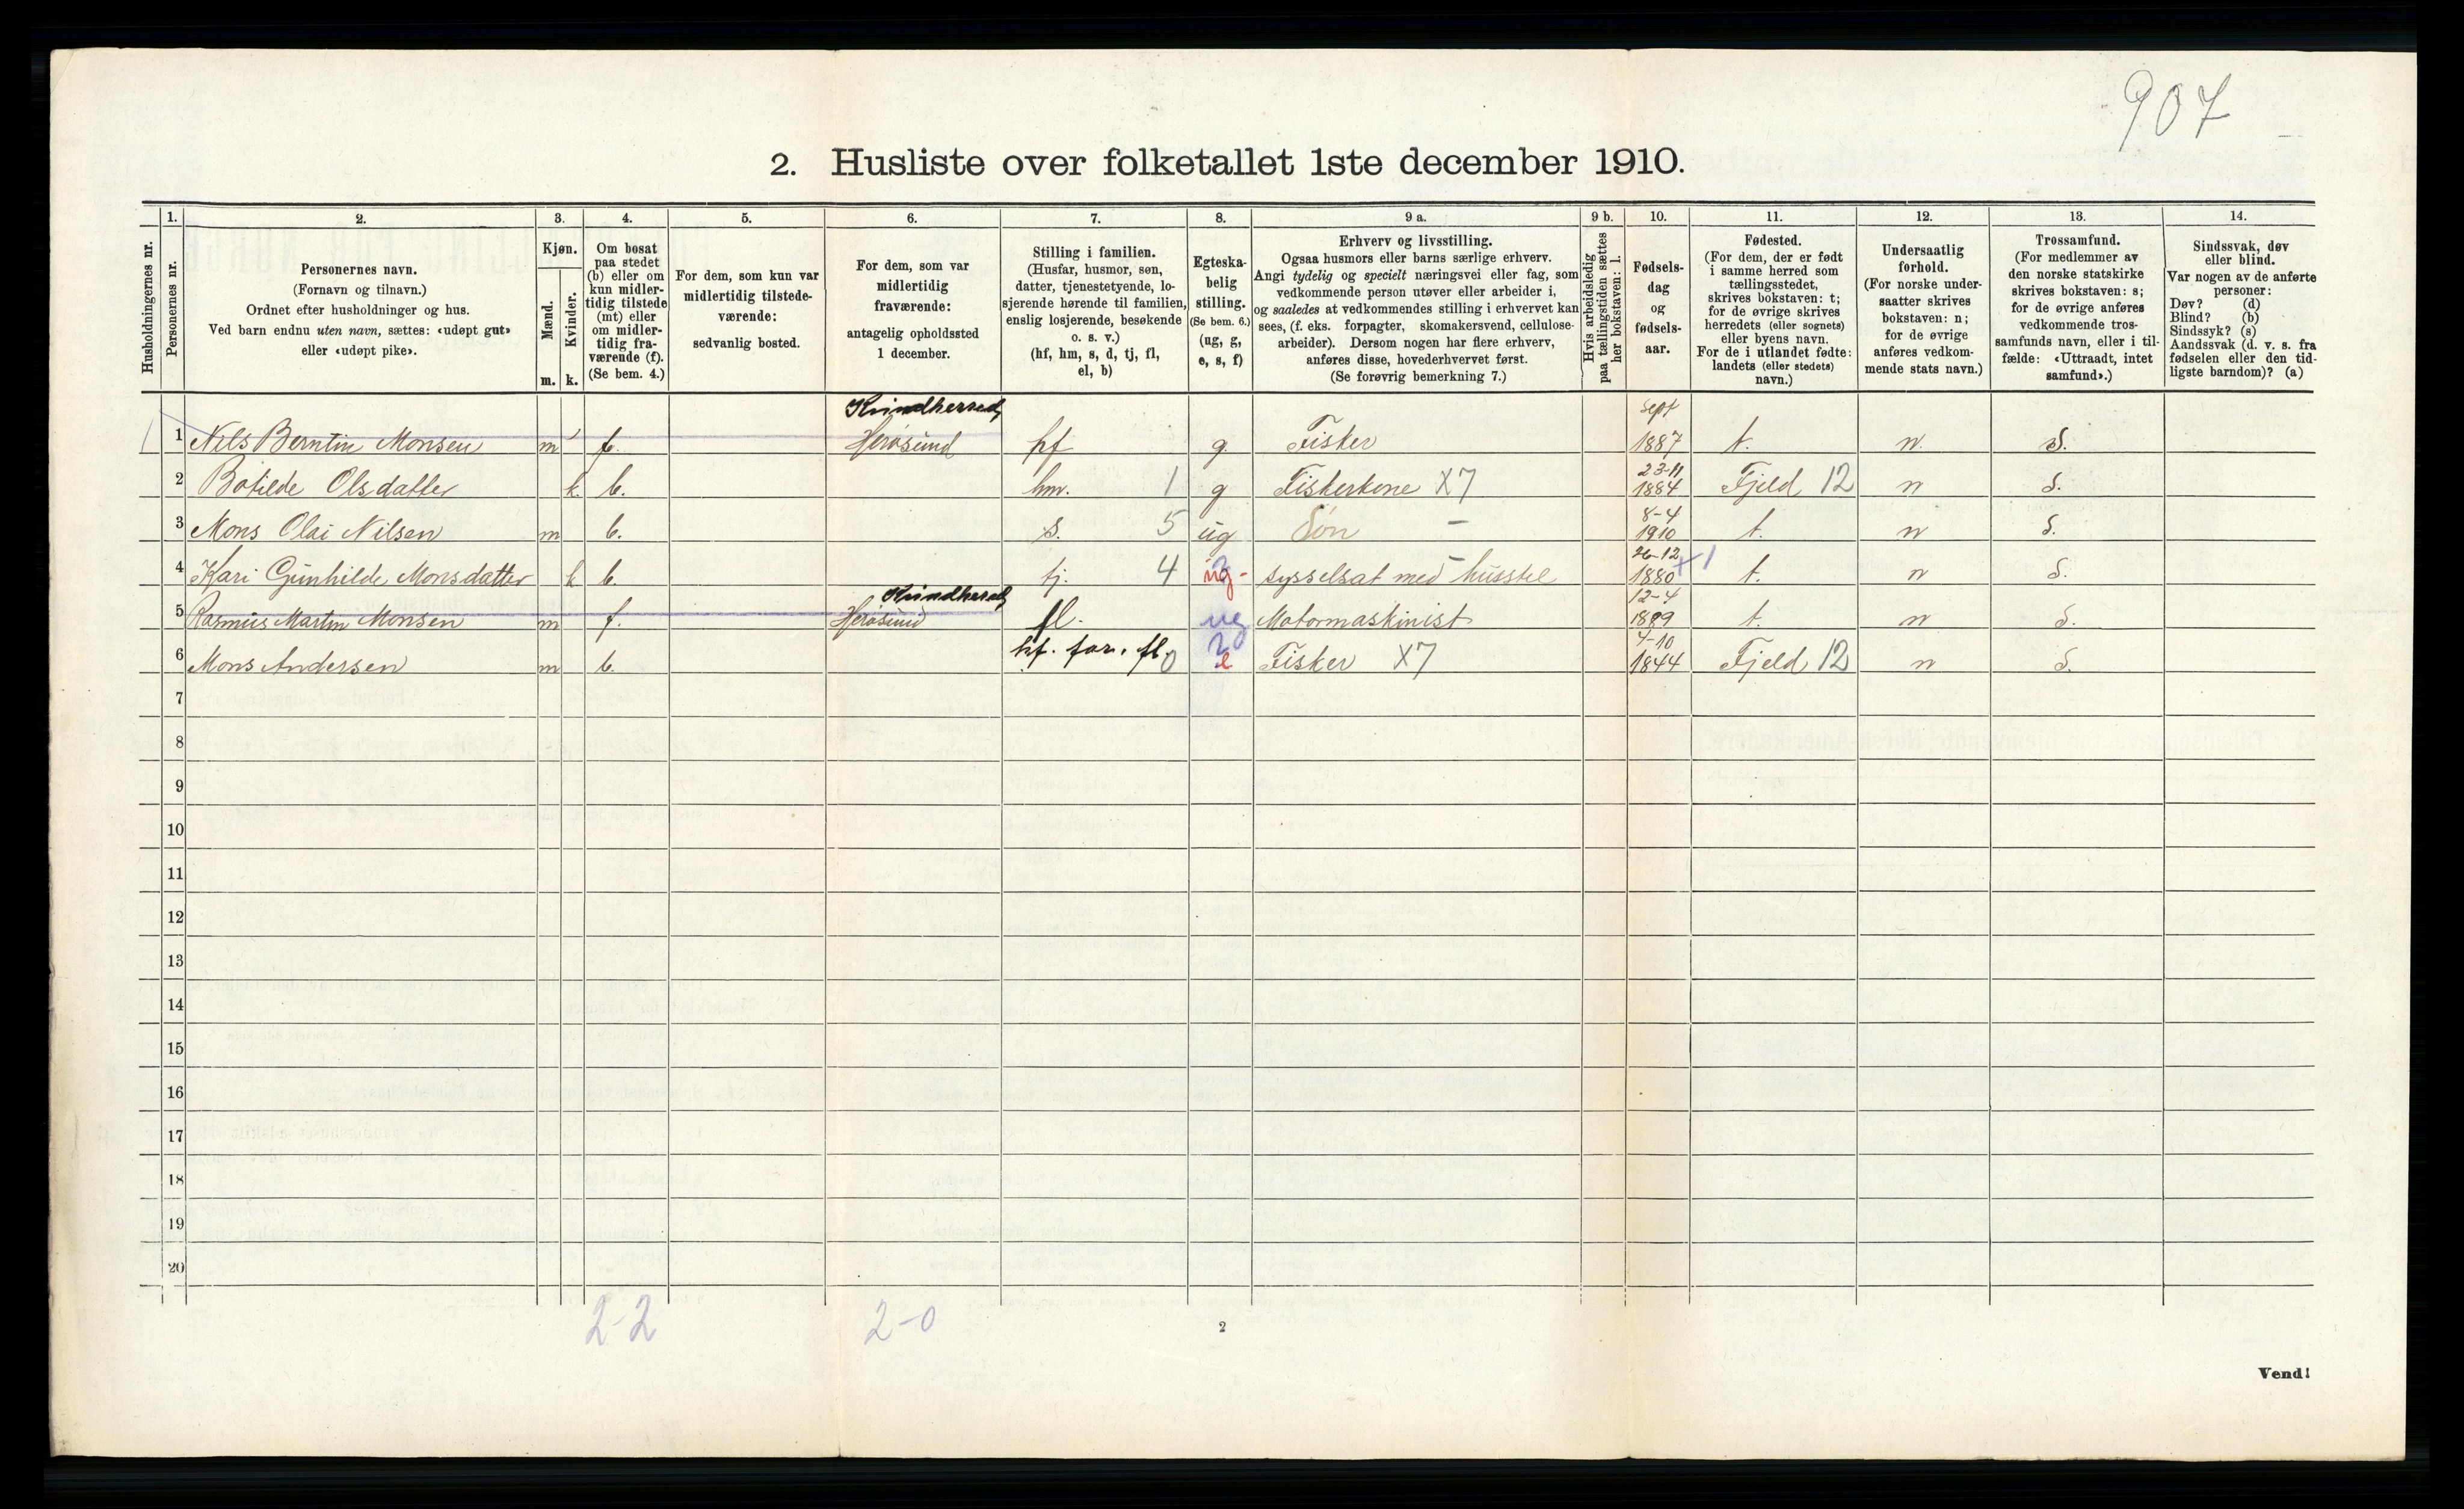 907
2. Husliste over folketallet 1ste december 1910.
Husholdningernes nr.
1. 2. 3. 4. 5. 6. 7. 8. 9 a. 9 b. 10. 11. 12. 13. 14.
Personernes nr.
Personernes navn.
(Fornavn og tilnavn.)
Ordnet efter husholdninger og hus.
Ved barn endnu uten navn, sættes: «udøpt gut»
eller «udøpt pike».
Kjøn.
Mænd.
Kvinder.
m. k.
Om bosat
paa stedet
(b) eller om
kun midler-
tidig tilstede
(mt) eller
om midler-
tidig fra-
værende (f).
(Se bem. 4.)
For dem, som kun var
midlertidig tilstede-
værende:
sedvanlig bosted.
For dem, som var
midlertidig
fraværende:
antagelig opholdssted
1 december.
Stilling i familien.
(Husfar, husmor, søn,
datter, tjenestetyende, lo-
sjerende hørende til familien,
enslig losjerende, besøkende
o. s. v.)
(hf, hm, s, d, tj, fl,
el, b)
Egteska-
belig
stilling.
(Se bem. 6.)
(ug, g,
e, s, f)
Erhverv og livsstilling.
Ogsaa husmors eller barns særlige erhverv.
Angi tydelig og specielt næringsvei eller fag, som
vedkommende person utøver eller arbeider i,
og saaledes at vedkommendes stilling i erhvervet kan
sees, (f. eks. forpagter, skomakersvend, cellulose-
arbeider). Dersom nogen har flere erhverv,
anføres disse, hovederhvervet først.
(Se forøvrig bemerkning 7.)
Hvis arbeidsledig
paa tællingstiden sættes
her bokstaven: l.
Fødsels-
dag
og
fødsels-
aar.
Fødested.
(For dem, der er født
i samme herred som
tællingsstedet,
skrives bokstaven: t;
for de øvrige skrives
herredets (eller sognets)
eller byens navn.
For de i utlandet fødte:
landets (eller stedets)
navn.)
Undersaatlig
forhold.
(For norske under-
saatter skrives
bokstaven: n;
for de øvrige
anføres vedkom-
mende stats navn.)
Trossamfund.
(For medlemmer av
den norske statskirke
skrives bokstaven: s;
for de øvrige anføres
vedkommende tros-
samfunds navn, eller i til-
fælde: «Uttraadt, intet
samfund».)
Sindssvak, døv
eller blind.
Var nogen av de anførte
personer:
Døv? (d)
Blind? (b)
Sindssyk? (s)
Aandssvak (d. v. s. fra
fødselen eller den tid-
ligste barndom)? (a)
Kvindherred Sept
1 Nils Berntin Monsen m f. Herøsund hf g. Fisker 1887 t. n. S.
23-11
2 Botilde Olsdatter k. b. hm. 1 g Fiskerkone X7 1884 Fjeld 12 n S.
8-4
3 Mons Olai Nilsen m b. s. 5 ug Søn - 1910 t. n S.
26-12
4 Kari Gunhilde Monsdatter k b. tj. 4 ug - sysselsat med husstel 1880 +1 t. n S.
Kvindherred 12-4
5 Rasmus Martin Monsen m f. Herøsund fl. ug Motormaskinist 1889 t. n S.
4-10
6 Mons Andersen m b. hf. far. fl. 0 e Fisker X7 1844 Fjeld 12 n S.
7
8
9
10
11
12
13
14
15
16
17
18
19
20
2-2 2-0
2
Vend!